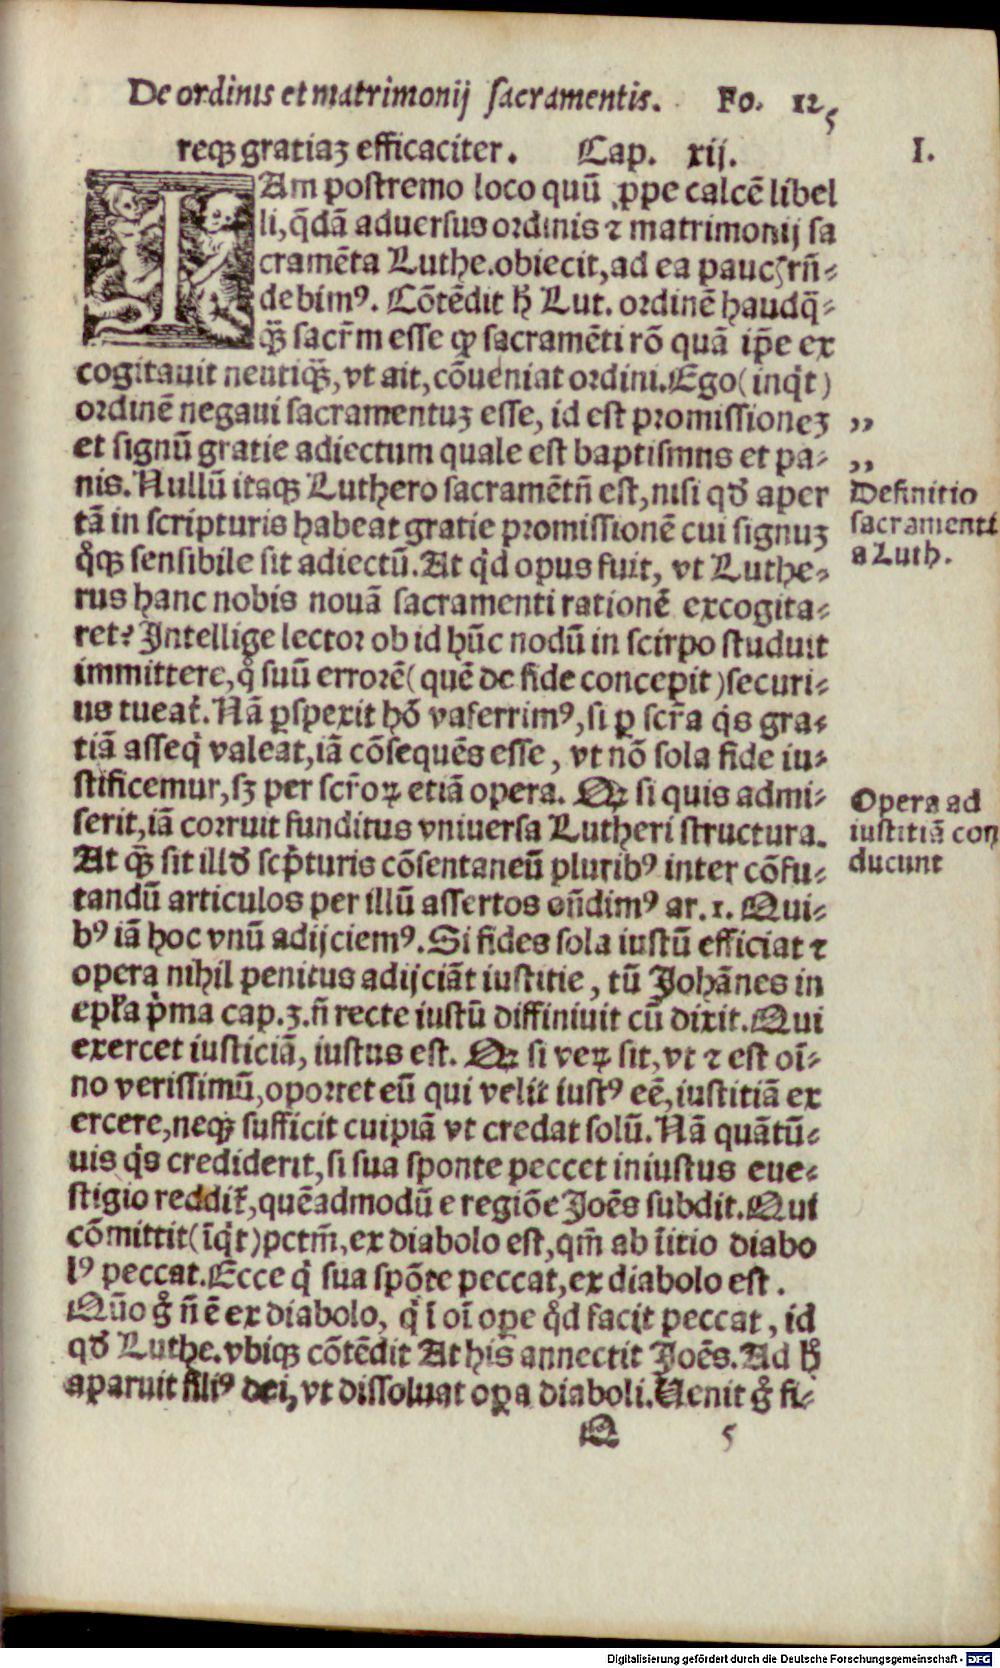 De ordinis et matrimonij sacramentis. Fo. 125
reqꝫ gratiaꝫ efficaciter. Cap. xij. I.
IAm postremo loco quū ꝓpe calcē libel
li, q̄dā aduersus ordinis ⁊ matrimonij sa
cramēta Luthe. obiecit, ad ea paucꝫ rn̄⸗
debimꝰ. Cōtēdit hꝫ Lut. ordinē haudq̄⸗
qꝫ sacr̄m esse ꝙ sacramēti rō quā ip̄e ex
cogitauit neutiqꝫ, vt ait, cōueniat ordini. Ego (inqͥt)
ordinē negaui sacramentuꝫ esse, id est promissioneꝫ ,,
et signū gratie adiectum quale est baptismus et pa⸗ ,,
nis. Nullū itaqꝫ Luthero sacramētū est, nisi qd̓ aper
tā in scripturis habeat gratie promissionē cui signuꝫ
qͦqꝫ sensibile sit adiectū. At qͥd opus fuit, vt Luthe⸗
rus hanc nobis nouā sacramenti rationē excogita⸗
ret? Intellige lector ob id hūc nodū in scirpo studuit
immittere, qͦ suū errorē (quē de fide concepit) securi⸗
us tueat᷑. Nā ꝑspexit hō vaferrimꝰ, si ꝑ scr̄a qͥs gra⸗
tiā asseqͥ valeat, iā cōsequēs esse, vt nō sola fide iu⸗
stificemur, sꝫ per scr̄oꝝ etiā opera. Qꝫ si quis admi⸗
serit, iā corruit funditus vniuersa Lutheri structura.
At qꝫ sit illd̓ scpͥturis cōsentaneū pluribꝰ inter cōfu⸗
tandū articulos per illū assertos oñdimꝰ ar. 1. Qui⸗
bꝰ iā hoc vnū adijciemꝰ. Si fides sola iustū efficiat ⁊
opera nihil penitus adijciāt iustitie, tū Johānes in
epl̓a pͥma cap. 3. n̄ recte iustū diffiniuit cū dixit. Qui
exercet iusticiā, iustus est. Qꝫ si veꝝ sit, vt ⁊ est oī⸗
no verissimū, oportet eū qui velit iustꝰ eē, iustitiā ex
ercere, neqꝫ sufficit cuipiā vt credat solū. Nā quātū⸗
uis qͥs crediderit, si sua sponte peccet iniustus eue⸗
stigio reddit᷑, quēadmodū e regiōe Joēs subdit. Qui
cōmittit (īqͥt) pctm̄, ex diabolo est, qm̄ ab ītio diabo
lꝰ peccat. Ecce qͥ sua spōte peccat, ex diabolo est.
Quō gͦ n̄ ē ex diabolo, qͥ ī oī oꝑe qͦd facit peccat, id
qd̓ Luthe. vbiqꝫ cōtēdit At his annectit Joēs. Ad hͦ
aparuit filiꝰ dei, vt dissoluat oꝑa diaboli. Uenit gͦ fi⸗
Q 5
Definitio
sacramenti
a Luth.
Opera ad
iustitiā con
ducunt